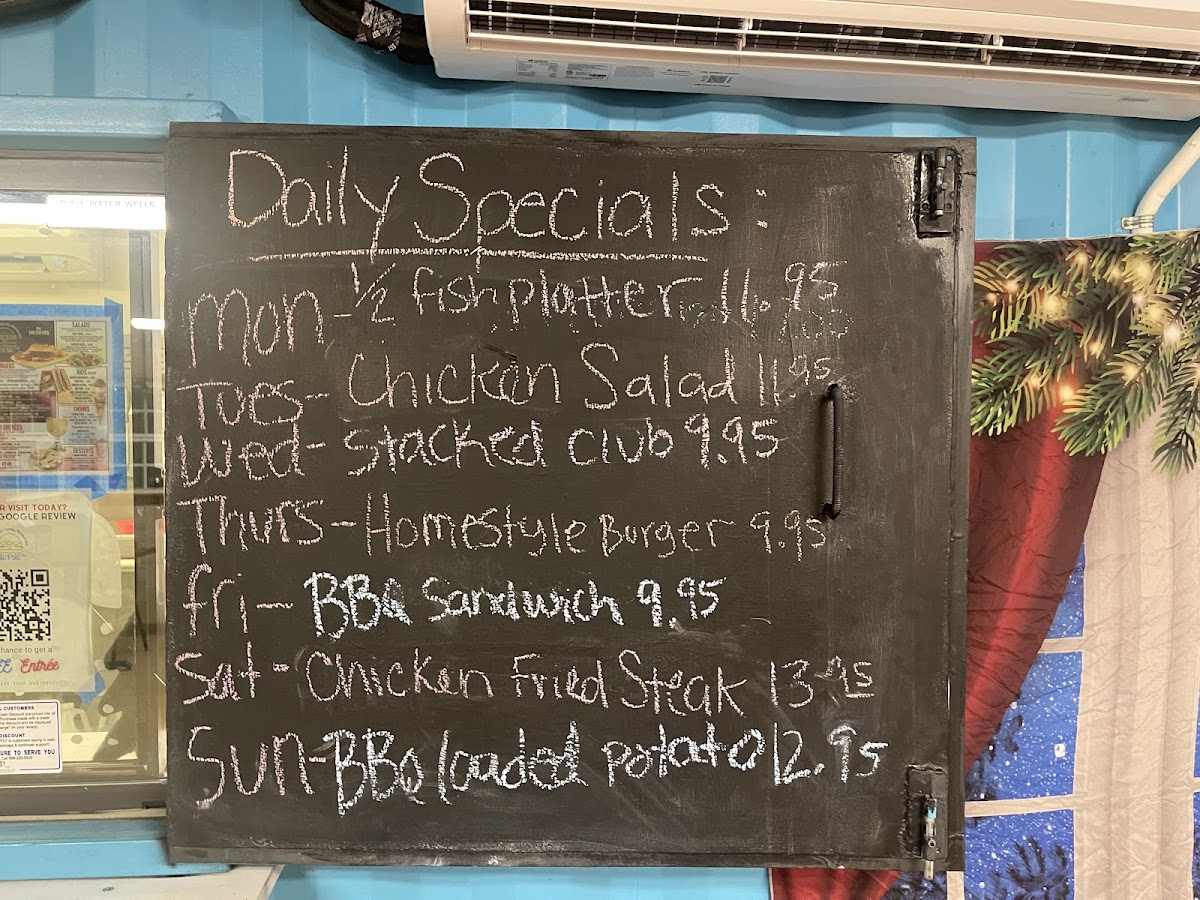 Daily Specials:
Mon - 1/2 fish platter 11.95
Toes - Chicken Salad 11.95
Wed - Stacked club 9.95
Thurs - Homestyle Burger 9.95
fri - BBQ Sandwich 9.95
Sat - Chicken Fried Steak 13.95
Sun - BBQ loaded potato 12.95
WATER WELLS
SALADS
R VISIT TODAY?
GOOGLE REVIEW
chance to get a
EE Entrée
CUSTOMERS
DISCOUNT
URE TO SERVE YOU